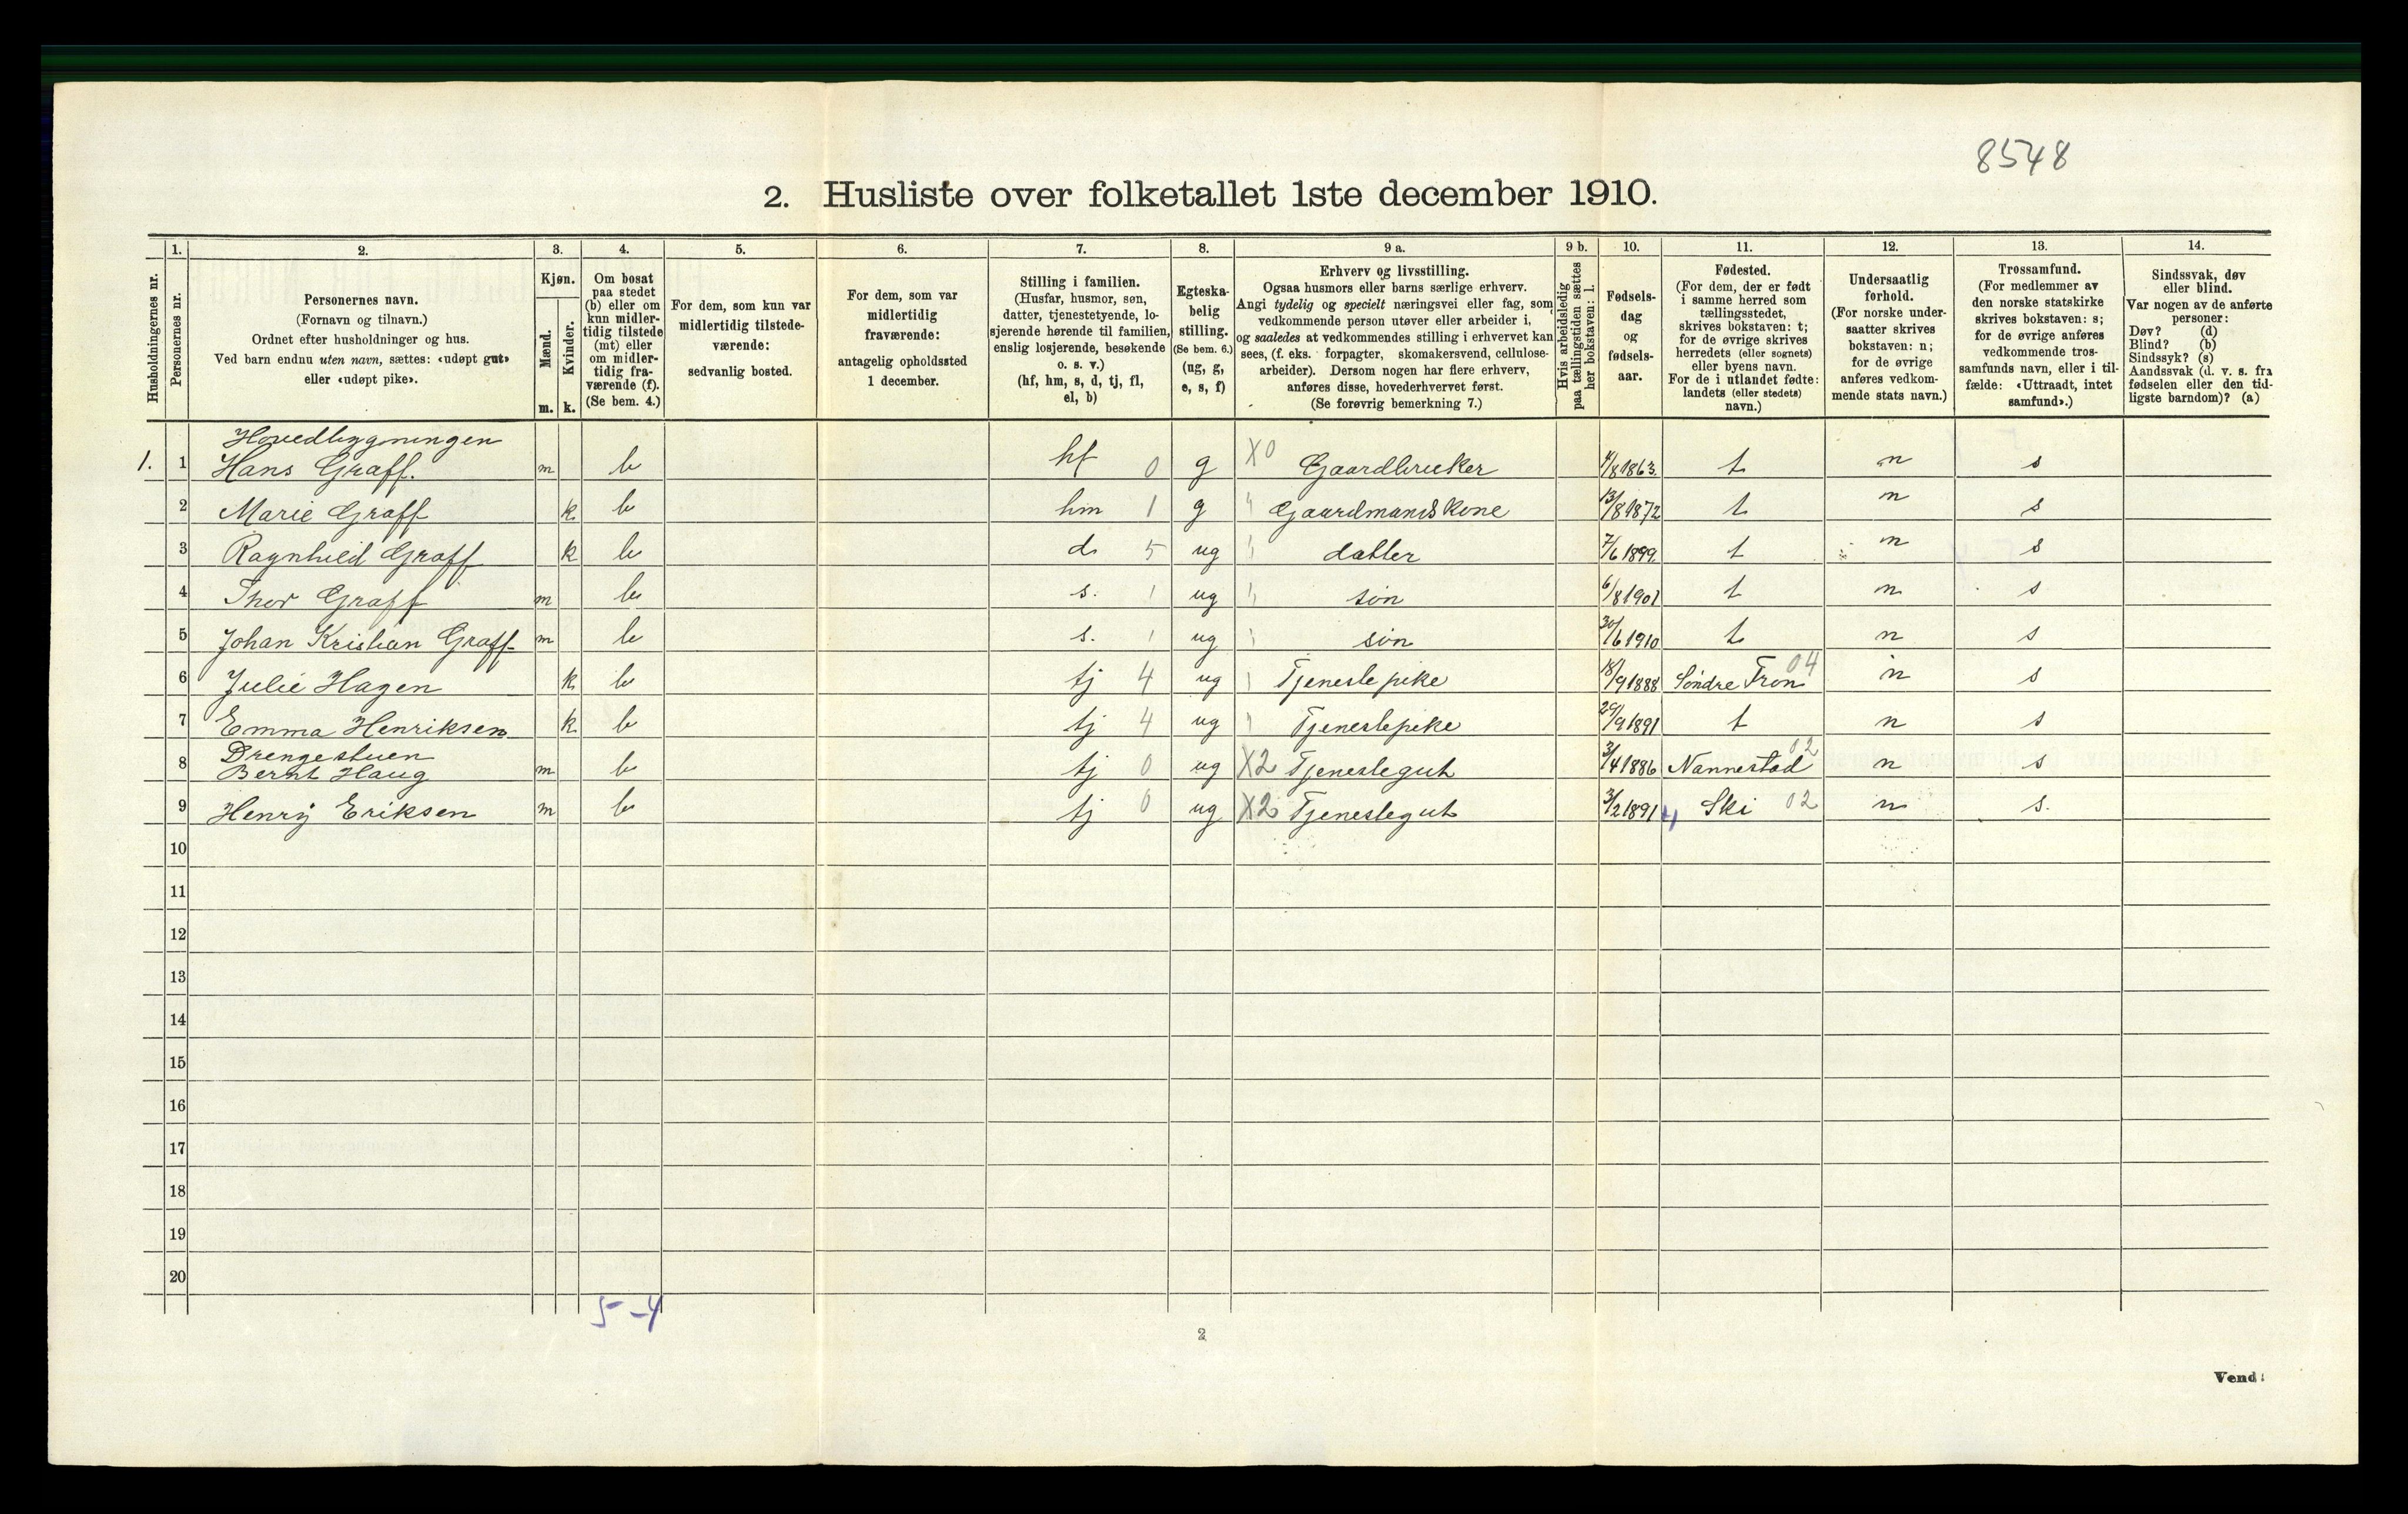 8548
2. Husliste over folketallet 1ste december 1910.
Husholdningernes nr.
1.
Personernes nr.
2.
Personernes navn.
(Fornavn og tilnavn.)
Ordnet efter husholdninger og hus.
Ved barn endnu uten navn, sættes: «udøpt gut»
eller «udøpt pike».
3.
Kjøn.
Mænd.
Kvinder.
m. k.
4.
Om bosat
paa stedet
(b) eller om
kun midler-
tidig tilstede
(mt) eller
om midler-
tidig fra-
værende (f).
(Se bem. 4.)
5.
For dem, som kun var
midlertidig tilstede-
værende:
sedvanlig bosted.
6.
For dem, som var
midlertidig
fraværende:
antagelig opholdssted
1 december.
7.
Stilling i familien.
(Husfar, husmor, søn,
datter, tjenestetyende, lo-
sjerende hørende til familien,
enslig losjerende, besøkende
o. s. v.)
(hf, hm, s, d, tj, fl,
el, b)
8.
Egteska-
belig
stilling.
(Se bem. 6.)
(ug, g,
e, s, f)
9 a.
Erhverv og livsstilling.
Ogsaa husmors eller barns særlige erhverv.
Angi tydelig og specielt næringsvei eller fag, som
vedkommende person utøver eller arbeider i,
og saaledes at vedkommendes stilling i erhvervet kan
sees, (f. eks. forpagter, skomakersvend, cellulose-
arbeider). Dersom nogen har flere erhverv,
anføres disse, hovederhvervet først.
(Se forøvrig bemerkning 7.)
9 b.
Hvis arbeidsledig
paa tællingstiden sættes
her bokstaven: l.
10.
Fødsels-
dag
og
fødsels-
aar.
11.
Fødested.
(For dem, der er født
i samme herred som
tællingsstedet,
skrives bokstaven: t;
for de øvrige skrives
herredets (eller sognets)
eller byens navn.
For de i utlandet fødte:
landets (eller stedets)
navn.)
12.
Undersaatlig
forhold.
(For norske under-
saatter skrives
bokstaven: n;
for de øvrige
anføres vedkom-
mende stats navn.)
13.
Trossamfund.
(For medlemmer av
den norske statskirke
skrives bokstaven: s;
for de øvrige anføres
vedkommende tros-
samfunds navn, eller i til-
fælde: «Uttraadt, intet
samfund».)
14.
Sindssvak, døv
eller blind.
Var nogen av de anførte
personer:
Døv? (d)
Blind? (b)
Sindssyk? (s)
Aandssvak (d. v. s. fra
fødselen eller den tid-
ligste barndom)? (a)
Hovedbygningen
1. 1 Hans Graff. m b hf 0 g X0 Gaardbruker 4/8 1863. t n s
2 Marie Graff k b hm 1 g " Gaardmandskone 13/8 1872 t n s
3 Ragnhild Graff k b d 5 ug " datter 7/6 1899. t n s
4 Thor Graff m b s. 1 ug " søn 6/8 1901 t n s
5 Johan Kristian Graff m b s. 1 ug " søn 30/6 1910 t n s
6 Julie Hagen k b tj 4 ug " Tjenestepike 18/9 1888 Søndre Fron 04 n s
7 Emma Henriksen k b tj 4 ug " Tjenestepike 29/9 1891 t n s
Drengestuen
8 Bernt Haug m b tj 0 ug X2 Tjenestegut 3/4 1886 Nannestad 02 n s
9 Henry Eriksen m b tj 0 ug X2 Tjenestegut 3/2 1891 Ski 02 n s.
10
11
12
13
14
15
16
17
18
19
20
5-4
2
Vend!